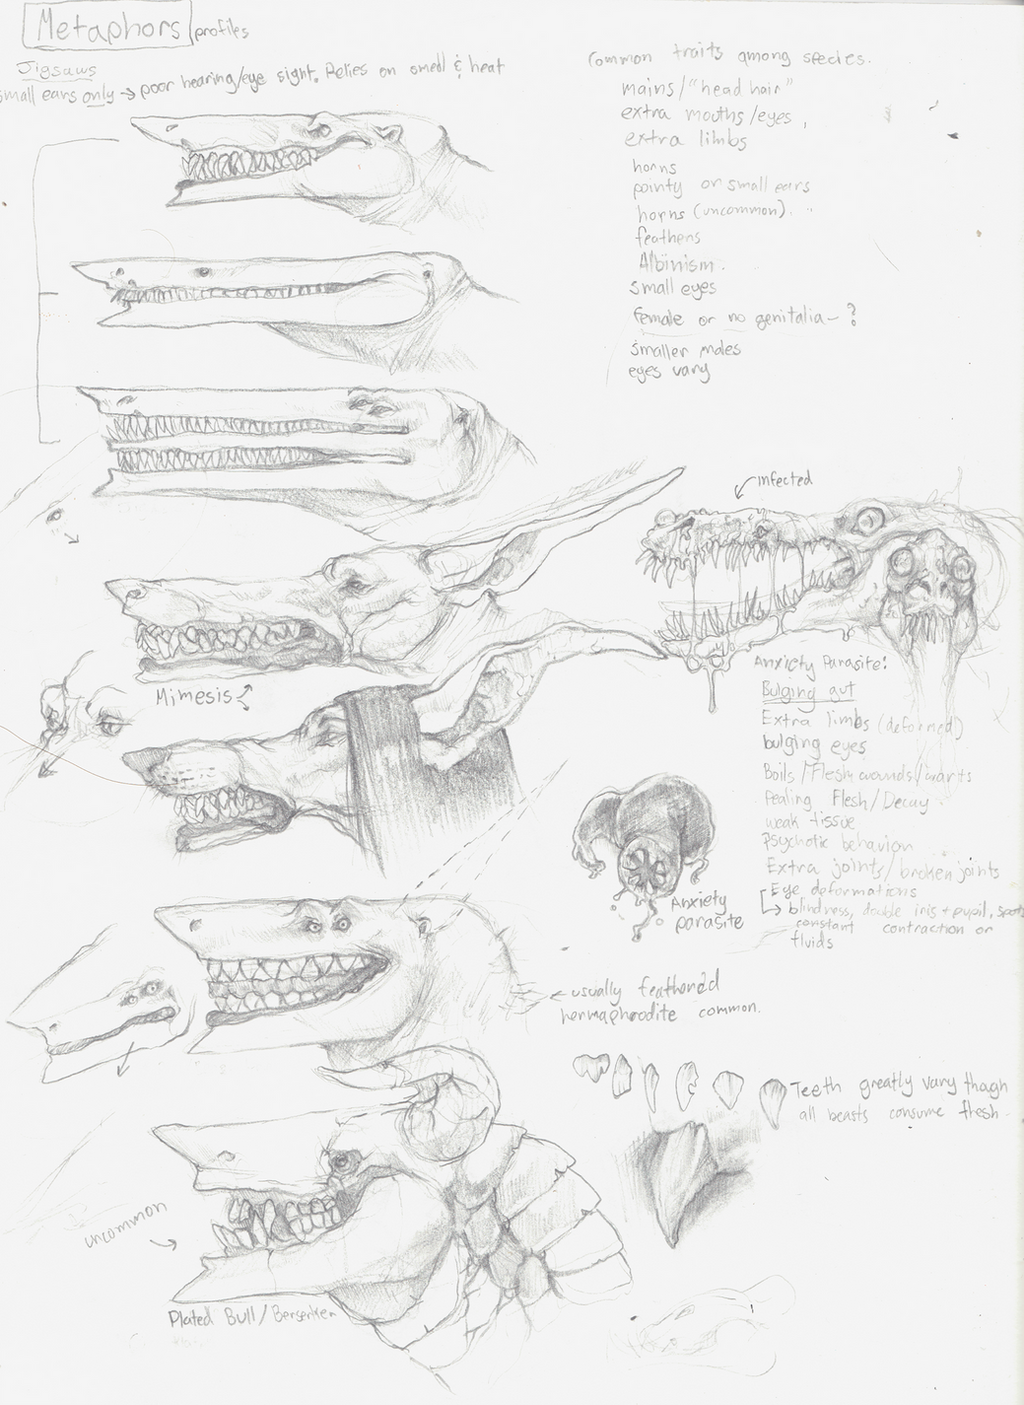 Metaphors profiles
Jigsaws
small ears only → poor hearing/eye sight. Relies on smell & heat
Common traits among species.
mains/"head hair"
extra mouths/eyes,
extra limbs
horns
pointy or small ears
horns (uncommon).
feathers
Albinism.
small eyes
female or no genitalia - ?
smaller males
eyes vary
infected
Mimesis
Anxiety Parasite:
Bulging gut
Extra limbs (deformed)
bulging eyes
Boils/Flesh wounds/warts
Pealing Flesh/Decay
weak tissue
Psychotic behavior
Extra joints/broken joints
Eye deformations
↳ blindness, double iris + pupil, spots
constant contraction or
fluids
Anxiety
parasite
← usually feathered
hermaphrodite common.
Teeth greatly vary though
all beasts consume flesh
uncommon
Plated Bull/Berserker